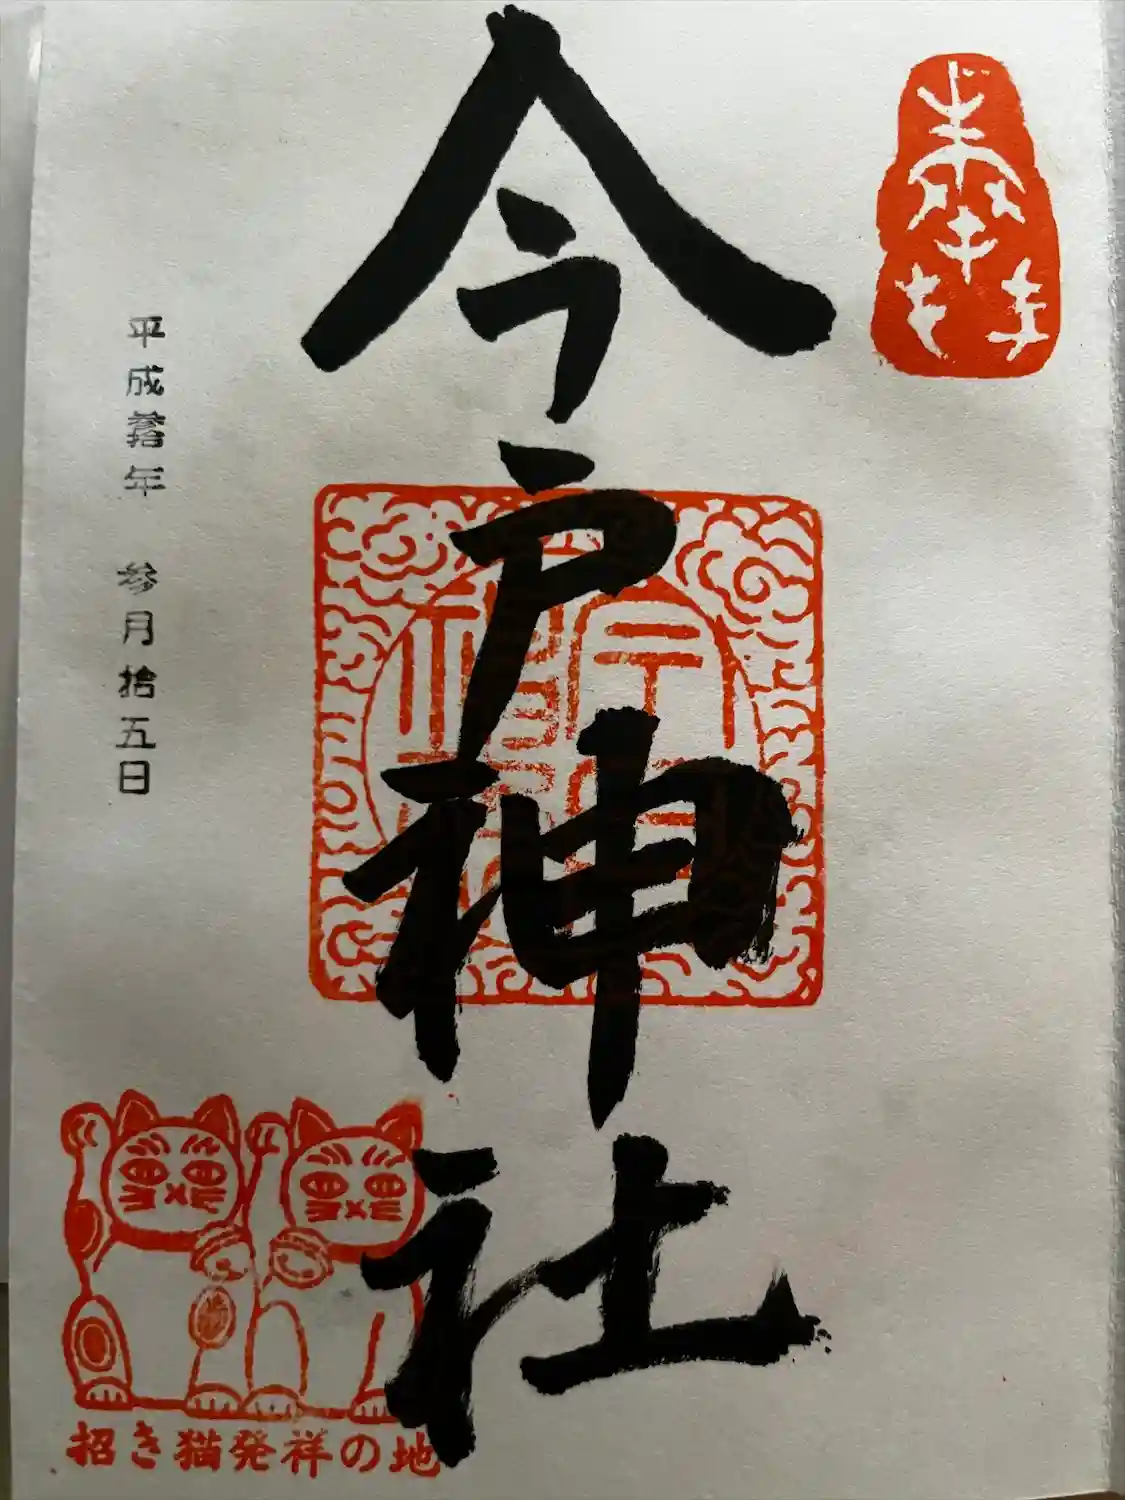 奉拝
今戸神社
平成 年 参月拾五日
招き猫発祥の地